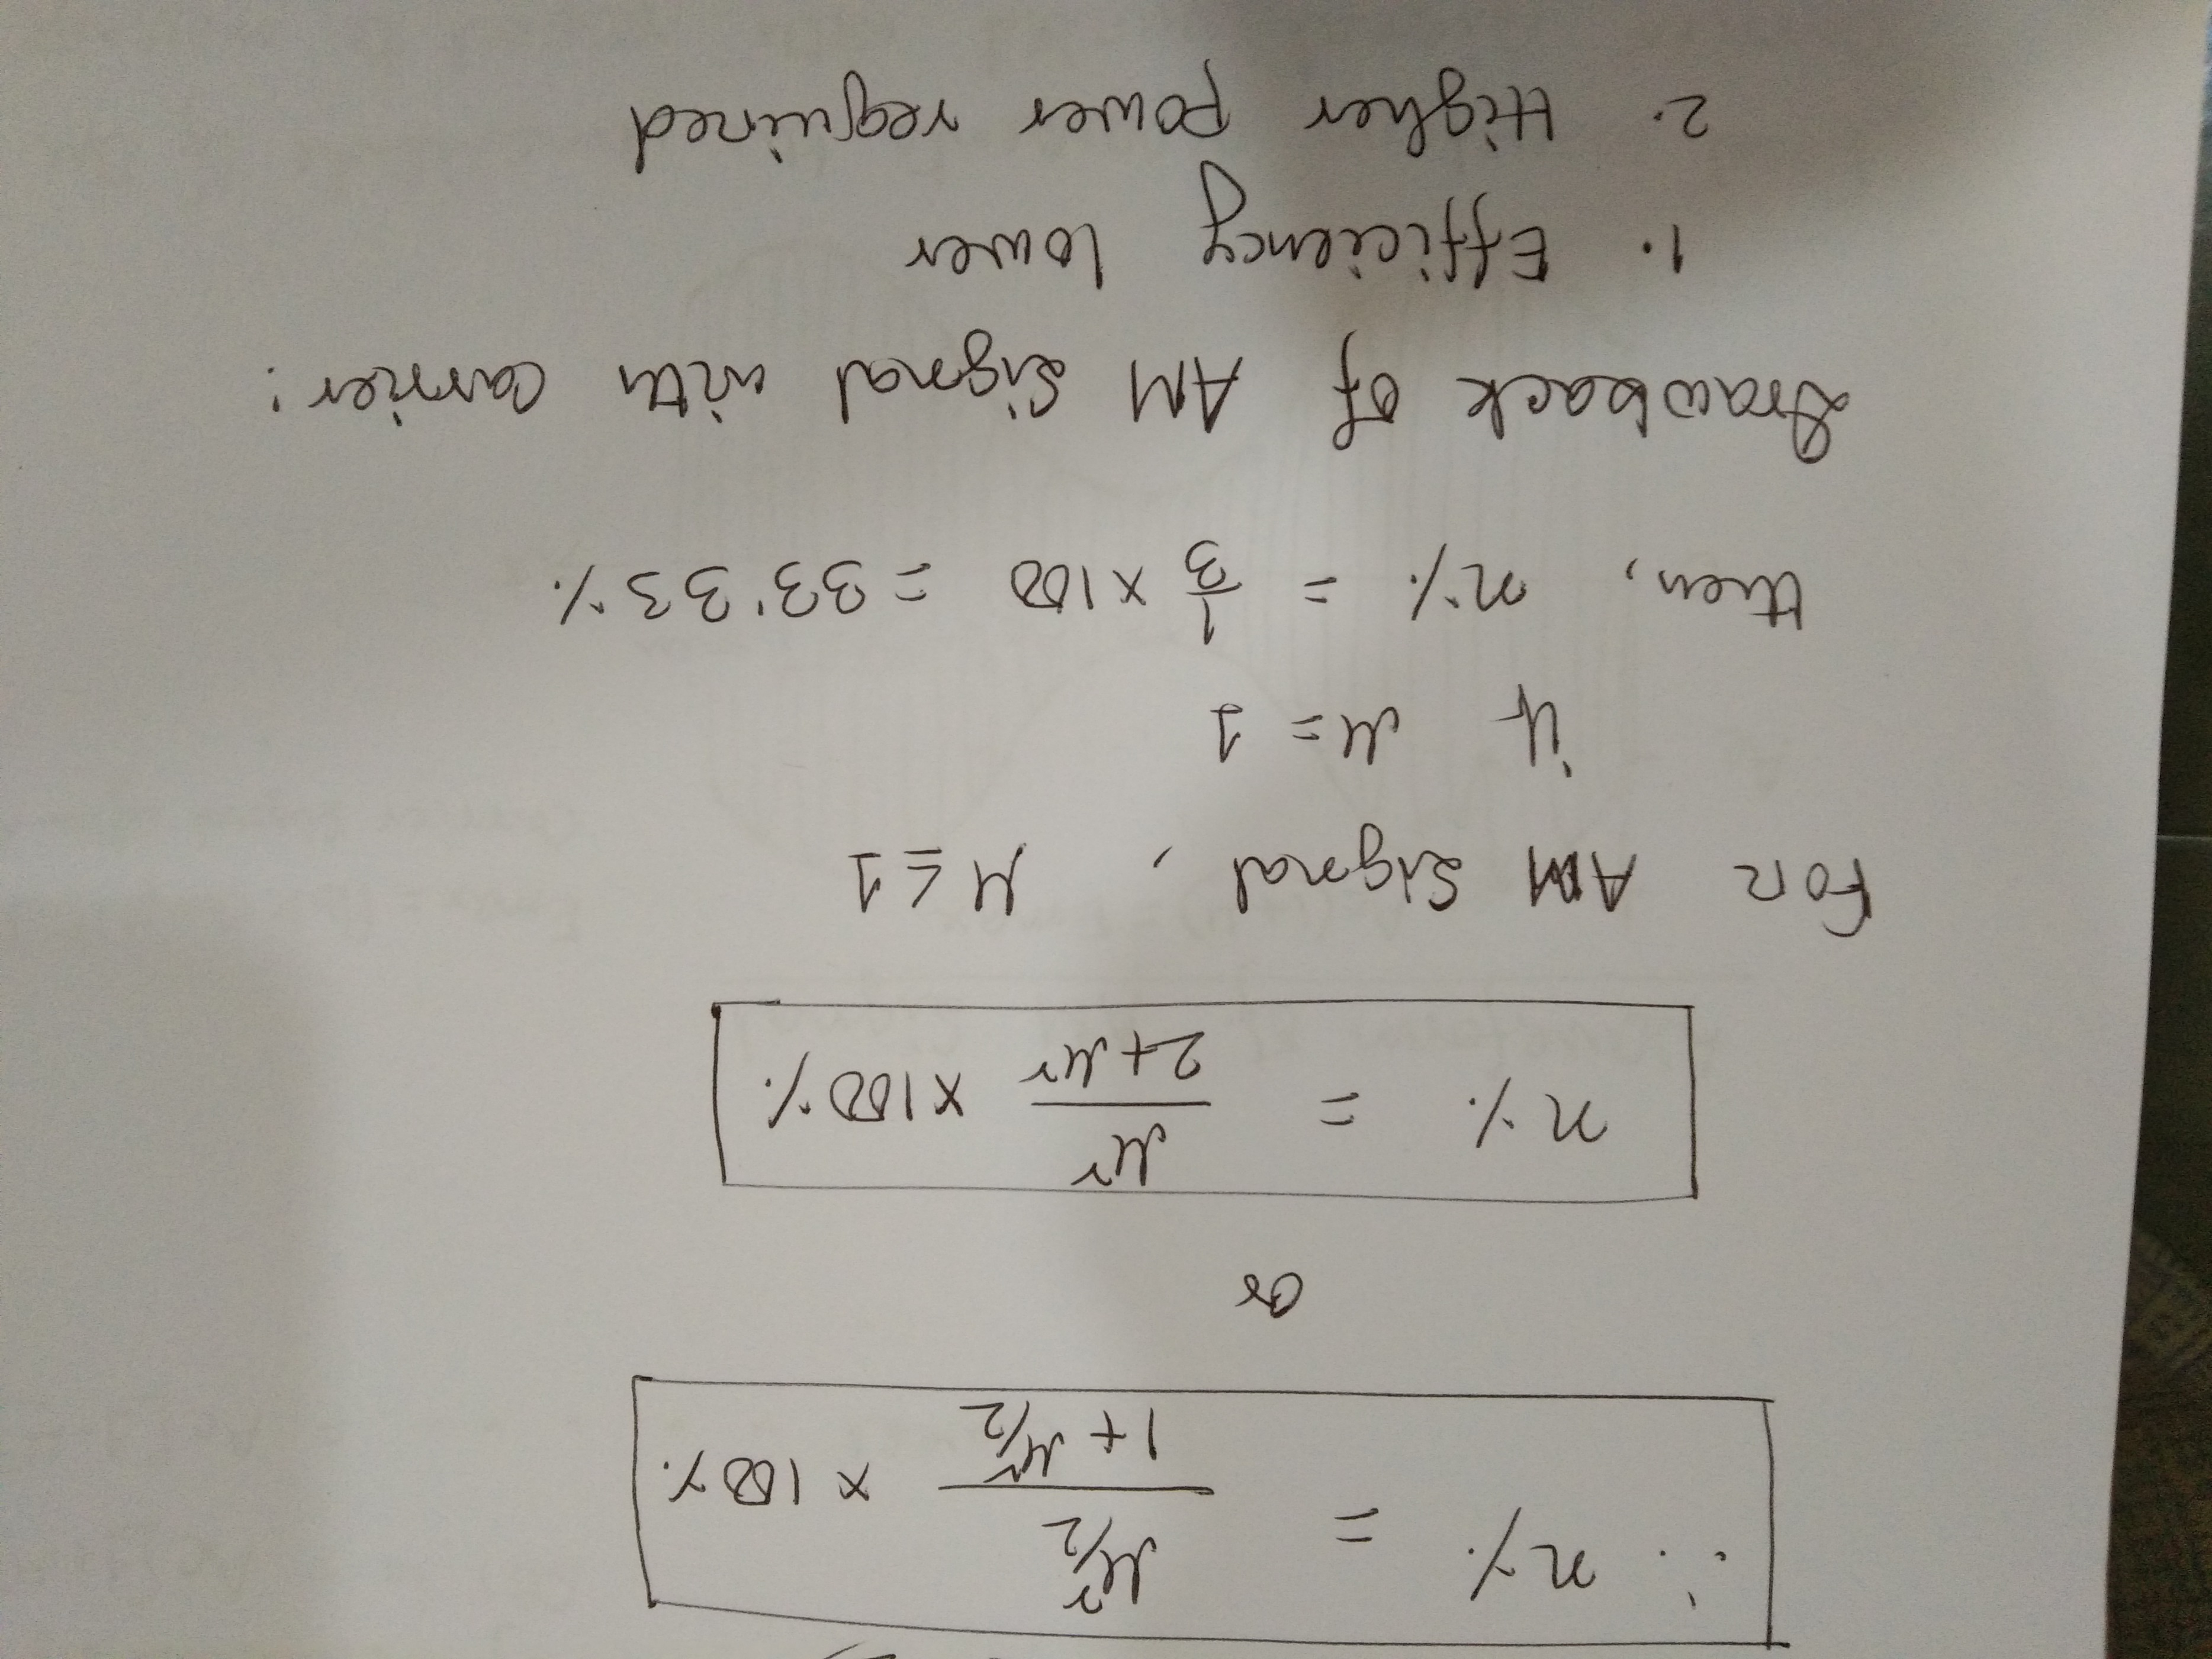 ∴ η% = (μ²/2)/(1+μ²/2) × 100%
or
η% = μ²/(2+μ²) ×100%
For AM signal, μ≤1
if μ=1
then, η% = 1/3 ×100 = 33.33%
Drawback of AM signal with carrier:
1. Efficiency lower
2. Higher power required